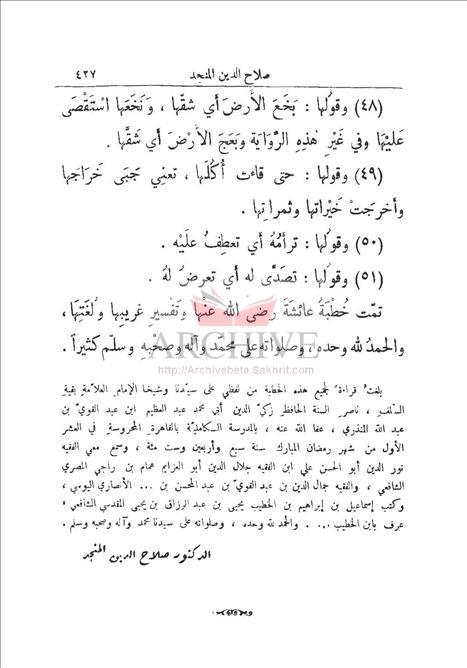 صلاح الدين المنجد ٤٣٧
(٤٨) وقولها : بَخَعَ الأَرضَ أي شقَّها ، ونَخَعَها اسْتَقْصَى
عليْها وفي غَيْرِ هٰذِهِ الرِّوَايَة وبَعَجَ الأَرْضَ أي شَقَّها .
(٤٩) وقولها : حتى قاءت أُكُلَها ، تعني جَبَى خَرَاجَها
وأخرجَتْ خَيْراتها وثمراتِها .
(٥٠) وقولها : ترأَمُهُ أي تعطِفُ عَلَيْه .
(٥١) وقولها : تصَدَّى له أي تعرضُ لهُ .
تمّت خُطْبَةُ عائشَةَ رضي الله عنْها وتَفْسير غَريبِها ولُغَتِها ،
والحمدُ لله وحده ، وصلواته على محمّد وآله وصحبِه وسلّم كثيراً .
ARCHIVE
http://Archivebeta.Sakhrit.com
بلغت قراءة لجميع هذه الخطبة من لفظي على سيّدنا وشيخنا الإمام العلاّمة بقية
السّلف ، ناصر السنة الحافظ زكيّ الدين أبي محمد عبد العظيم ابن عبد القويّ بن
عبد الله المنذري ، عفا الله عنه ، بالمدرسة الكامليّة بالقاهرة المحروسة في العشر
الأول من شهر رمضان المبارك سنة سبع وأربعين وست مئة ، وسمع معي الفقيه
نور الدين أبو الحسن علي ابن الفقيه جلال الدين أبو العزايم همام بن راجي المصري
الشافعي ، والفقيه جمال الدين بن عبد القويّ بن عبد المحسن بن ... الأنصاري
وكتب إسماعيل بن إبراهيم بن الخطيب يحيى بن عبد الرزاق بن يحيى المقدسي الشافعي
عرف بابن الخطيب ... . والحمد لله وحده ، وصلواته على سيدنا محمد وآله وصحبه وسلم .
الدكتور صلاح الدين المنجد